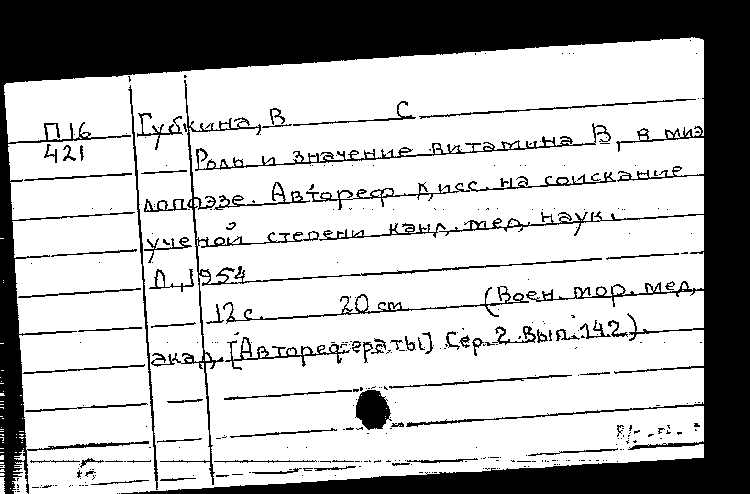 П16 Губкина, В С
421 Роль и значение витамина В, в миэ
лопоэзе. Автореф. дисс. на соискание
ученой степени канд. мед. наук.
Л., 1954
12 с. 20 см (Воен. мор. мед.
акад. [Авторефераты] Сер. 2. Вып. 142).